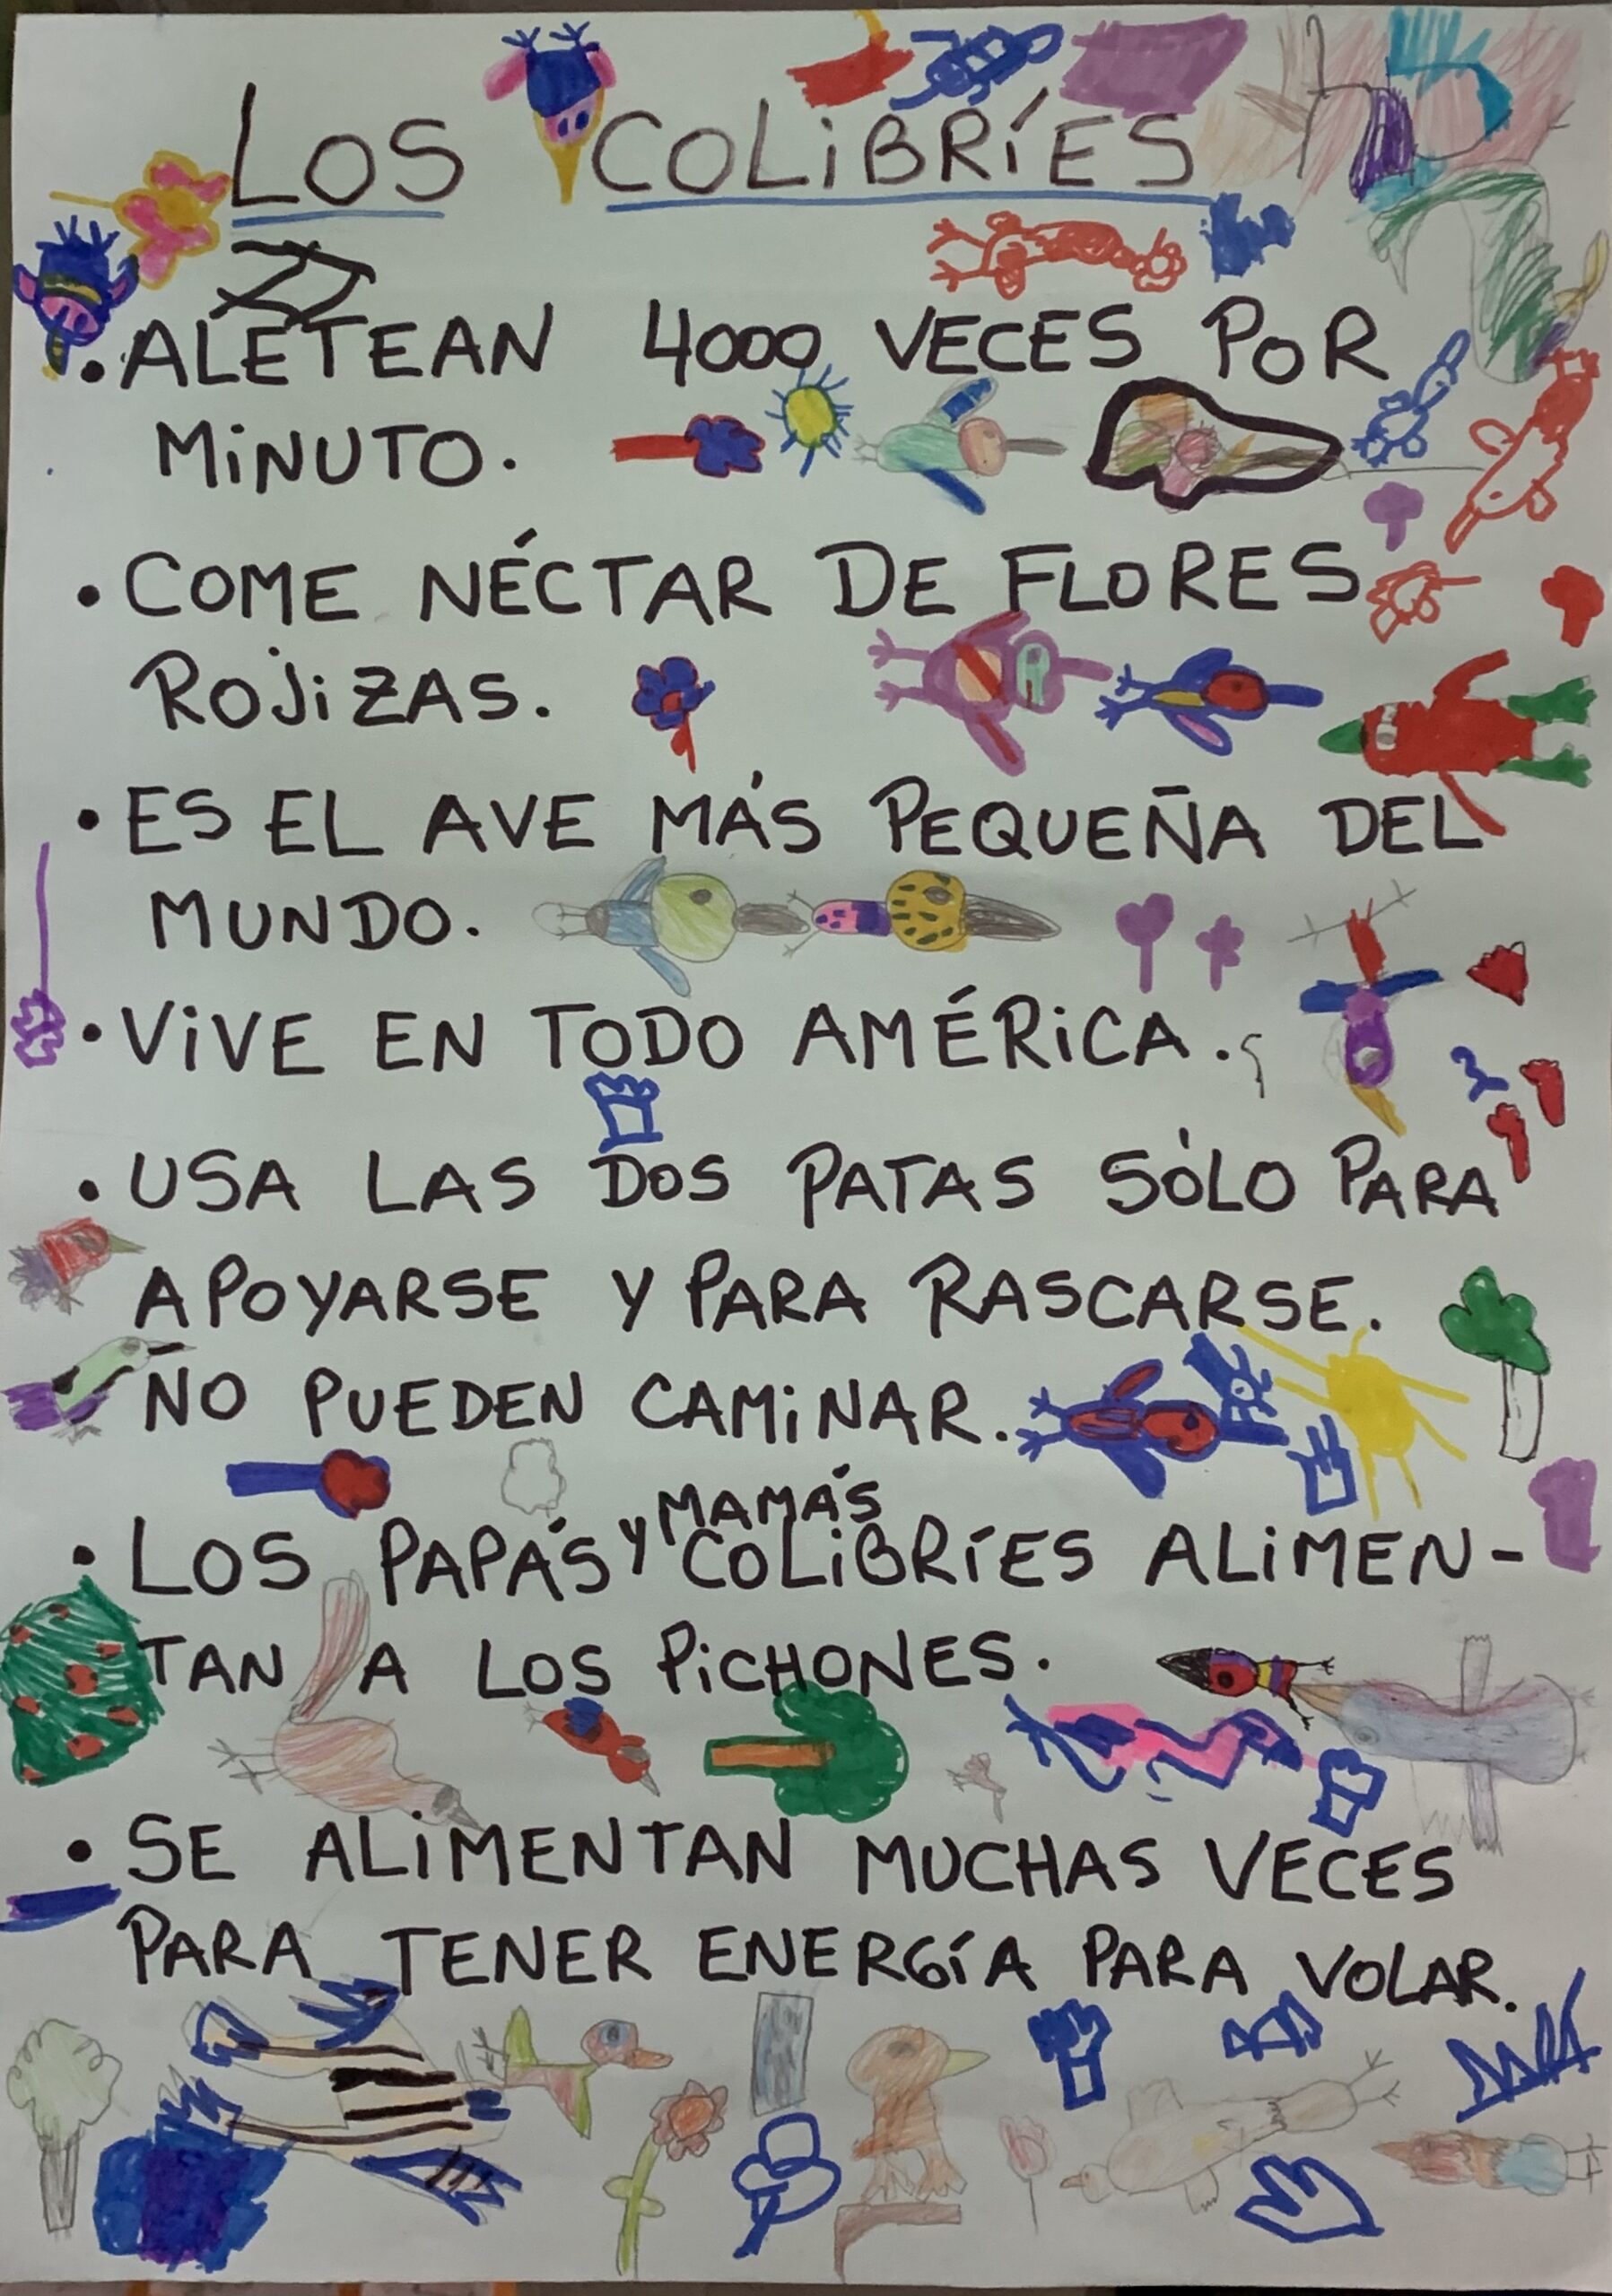 LOS COLiBRÍES
• ALETEAN 4000 VECES POR
MiNUTO.
• COME NÉCTAR DE FLORES
ROJiZAS.
• ES EL AVE MÁS PEQUEÑA DEL
MUNDO.
• ViVE EN TODO AMÉRiCA.
• USA LAS DOS PATAS SÓLO PARA
APOYARSE Y PARA RASCARSE.
NO PUEDEN CAMiNAR.
• LOS PAPÁS Y MAMÁS COLiBRÍES ALiMEN-
TAN A LOS PiCHONES.
• SE ALiMENTAN MUCHAS VECES
PARA TENER ENERGÍA PARA VOLAR.